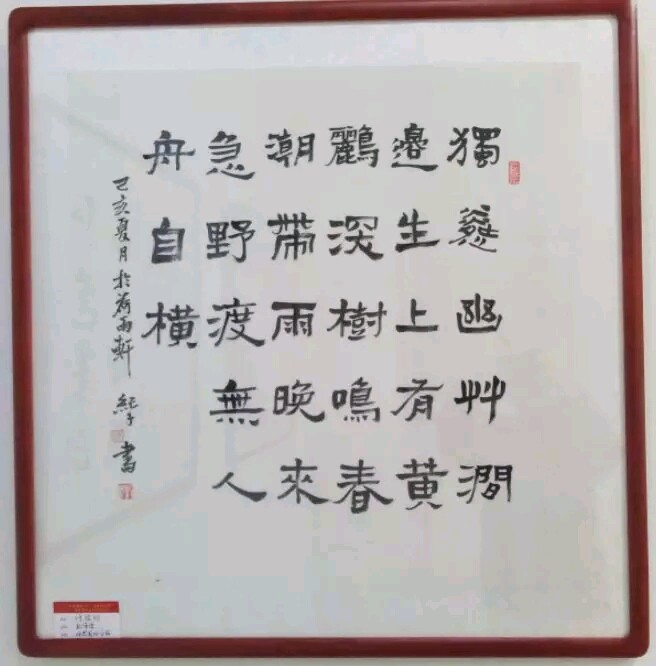 獨㦗幽艸澗
邉生上有黄
鸝深樹鳴春
潮帶雨晚來
急野渡無人
舟自橫
己亥夏月於荷雨軒 紀子 書